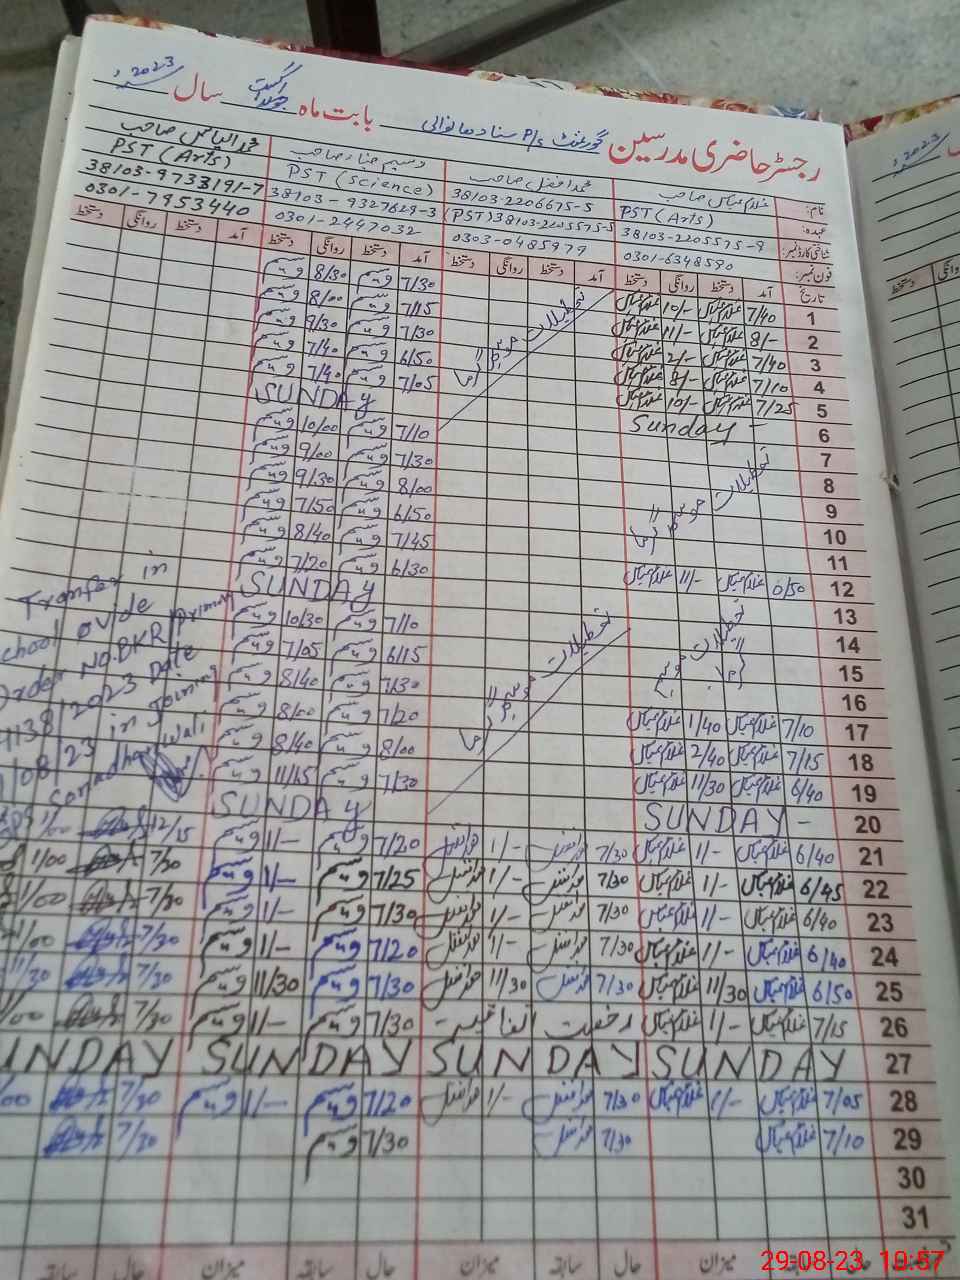 رجسٹر حاضری مدرسین گورنمنٹ P/S سنادھانوالی بابت ماہ جولائی اگست سال 2023
نام: غلام عباس صاحب محمد افضل صاحب وسیم صاحب محمد الیاس صاحب
عہدہ: PST (Arts) PST (Science) PST (Arts)
شناختی کارڈ نمبر: 38103-2205575-9 38103-2206675-5 (PST) 38103-2205575-5 38103-9327629-3 38103-9733191-7
فون نمبر: 0301-6348590 0303-0485979 0301-2447032 0301-7953440
تاریخ آمد دستخط روانگی دستخط آمد دستخط روانگی دستخط آمد دستخط روانگی دستخط آمد دستخط روانگی دستخط
1 7/40 غلام عباس 10/- غلام عباس 7/30 وسیم 8/30 وسیم
2 8/- غلام عباس 11/- غلام عباس 7/15 وسیم 8/00 وسیم
3 7/40 غلام عباس 2/- غلام عباس 7/30 وسیم 9/30 وسیم
4 7/10 غلام عباس 8/- غلام عباس 6/50 وسیم 7/40 وسیم
5 7/25 غلام عباس 10/- غلام عباس 7/05 وسیم 7/40 وسیم
تعطیلات موسم گرما
6 Sunday - SUNDAY
7 7/10 وسیم 10/00 وسیم
8 7/30 وسیم 9/00 وسیم
9 8/00 وسیم 9/30 وسیم
تعطیلات موسم گرما
10 6/50 وسیم 7/50 وسیم
11 7/45 وسیم 8/40 وسیم
12 6/50 غلام عباس 11/- غلام عباس 6/30 وسیم 7/20 وسیم
13 SUNDAY
14 7/10 وسیم 10/30 وسیم
تعطیلات موسم گرما
15 6/15 وسیم 7/05 وسیم
تعطیلات موسم گرما
16 7/30 وسیم 8/40 وسیم
17 7/10 غلام عباس 1/40 غلام عباس 7/20 وسیم 8/00 وسیم
18 7/15 غلام عباس 2/40 غلام عباس 8/00 وسیم 8/40 وسیم
19 6/40 غلام عباس 11/30 غلام عباس 7/30 وسیم 11/15 وسیم
Tranfer in
chool ovide
order No. BKR Primary
4138/2023 Date
1/08/23 in Joining
Sanadhanwali
20 SUNDAY - SUNDAY
21 6/40 غلام عباس 1/- غلام عباس 7/30 محمد افضل 1/- محمد افضل 7/20 وسیم 1/- وسیم 12/15 1/00
22 6/45 غلام عباس 1/- غلام عباس 7/30 محمد افضل 1/- محمد افضل 7/25 وسیم 1/- وسیم 7/30 1/00
23 6/40 غلام عباس 1/- غلام عباس 7/30 محمد افضل 1/- محمد افضل 7/30 وسیم 1/- وسیم 7/30 1/00
24 6/40 غلام عباس 1/- غلام عباس 7/30 محمد افضل 1/- محمد افضل 7/20 وسیم 1/- وسیم 7/30 1/00
25 6/50 غلام عباس 11/30 غلام عباس 7/30 محمد افضل 11/30 محمد افضل 7/30 وسیم 11/30 وسیم 7/30 11/30
26 7/15 غلام عباس 1/- غلام عباس رخصت اتفاقیہ 7/30 وسیم 1/- وسیم 7/30 /00
27 SUNDAY SUNDAY SUNDAY UNDAY
28 7/05 غلام عباس 1/- غلام عباس 7/30 محمد افضل 1/- محمد افضل 7/20 وسیم 1/- وسیم 7/30 /00
29 7/10 غلام عباس 7/30 محمد افضل 7/30 وسیم 7/30
30
31
حال سابقہ میزان حال سابقہ میزان حال سابقہ میزان حال سابقہ
29-08-23 10:57
2023
روانگی دستخط